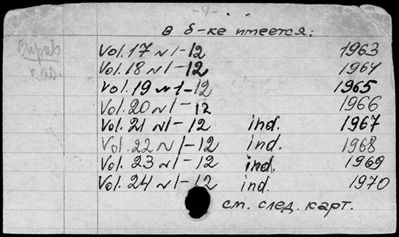 - 4 -
в б-ке имеется:
справ
каб.
Vol. 17 N 1-12 1963
Vol. 18 N 1-12 1964
Vol. 19 N 1-12 1965
Vol. 20 N 1-12 1966
Vol. 21 N 1-12 ind. 1967
Vol. 22 N 1-12 ind. 1968
Vol. 23 N 1-12 ind. 1969
Vol. 24 N 1-12 ind. 1970
см. след. карт.